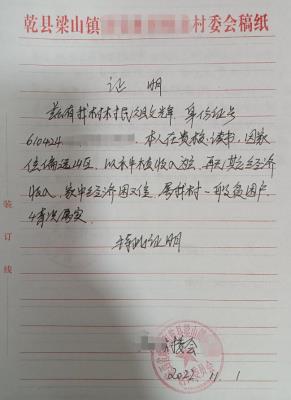 乾县梁山镇 村委会稿纸
证 明
兹有我村村民 身份证号
610424 本人在贵校读书，因家
住偏远山区，以 种植收入为主，再无其它经济
收入，家中经济困难，属我村一般贫困户，
情况属实
特此证明
村委会
2022. 11. 1
装 订 线